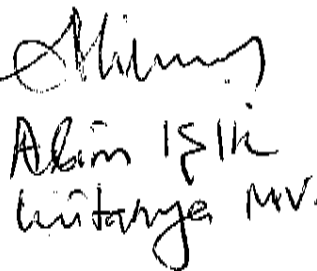 Alim IŞIK
Kütahya MV.